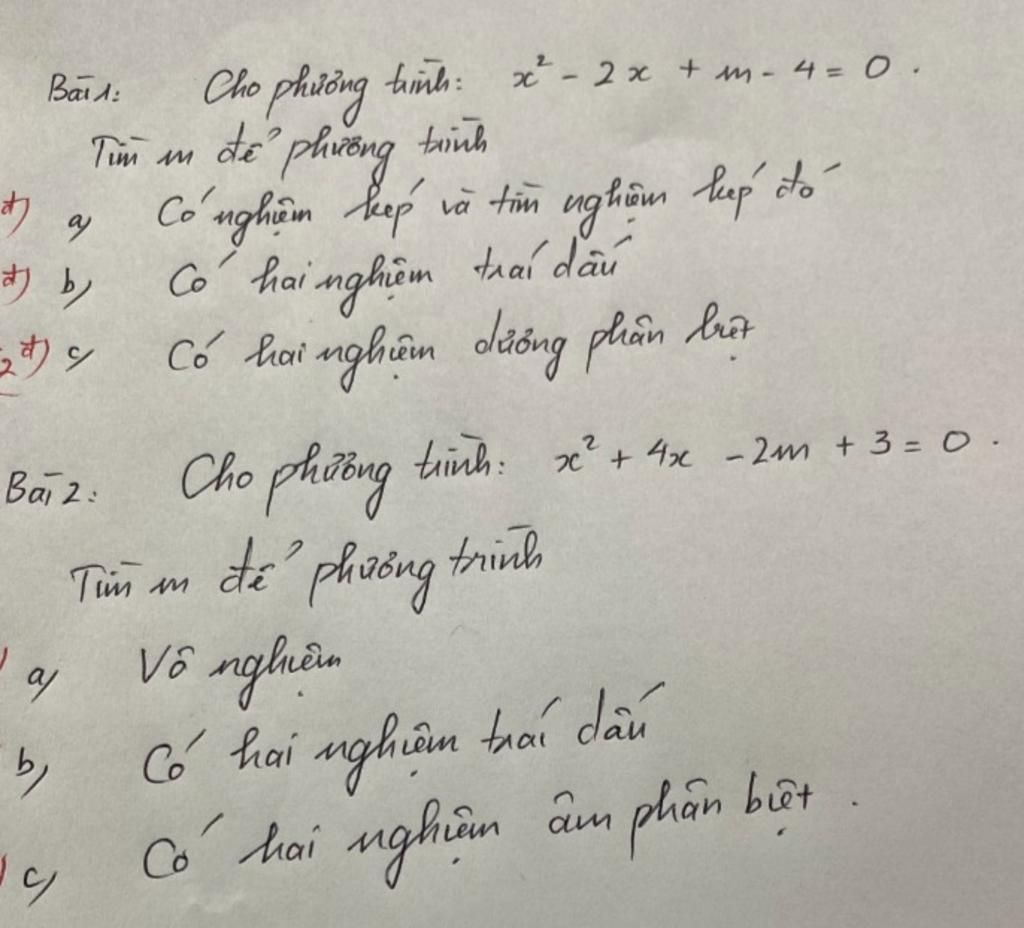 Bài 1: Cho phương trình: x² - 2x + m - 4 = 0.
Tìm m để phương trình
đ) a) Có nghiệm kép và tìm nghiệm kép đó
đ) b) Có hai nghiệm trái dấu
2đ) c) Có hai nghiệm dương phân biệt
Bài 2: Cho phương trình: x² + 4x - 2m + 3 = 0.
Tìm m để phương trình
a) Vô nghiệm
b) Có hai nghiệm trái dấu
c) Có hai nghiệm âm phân biệt.